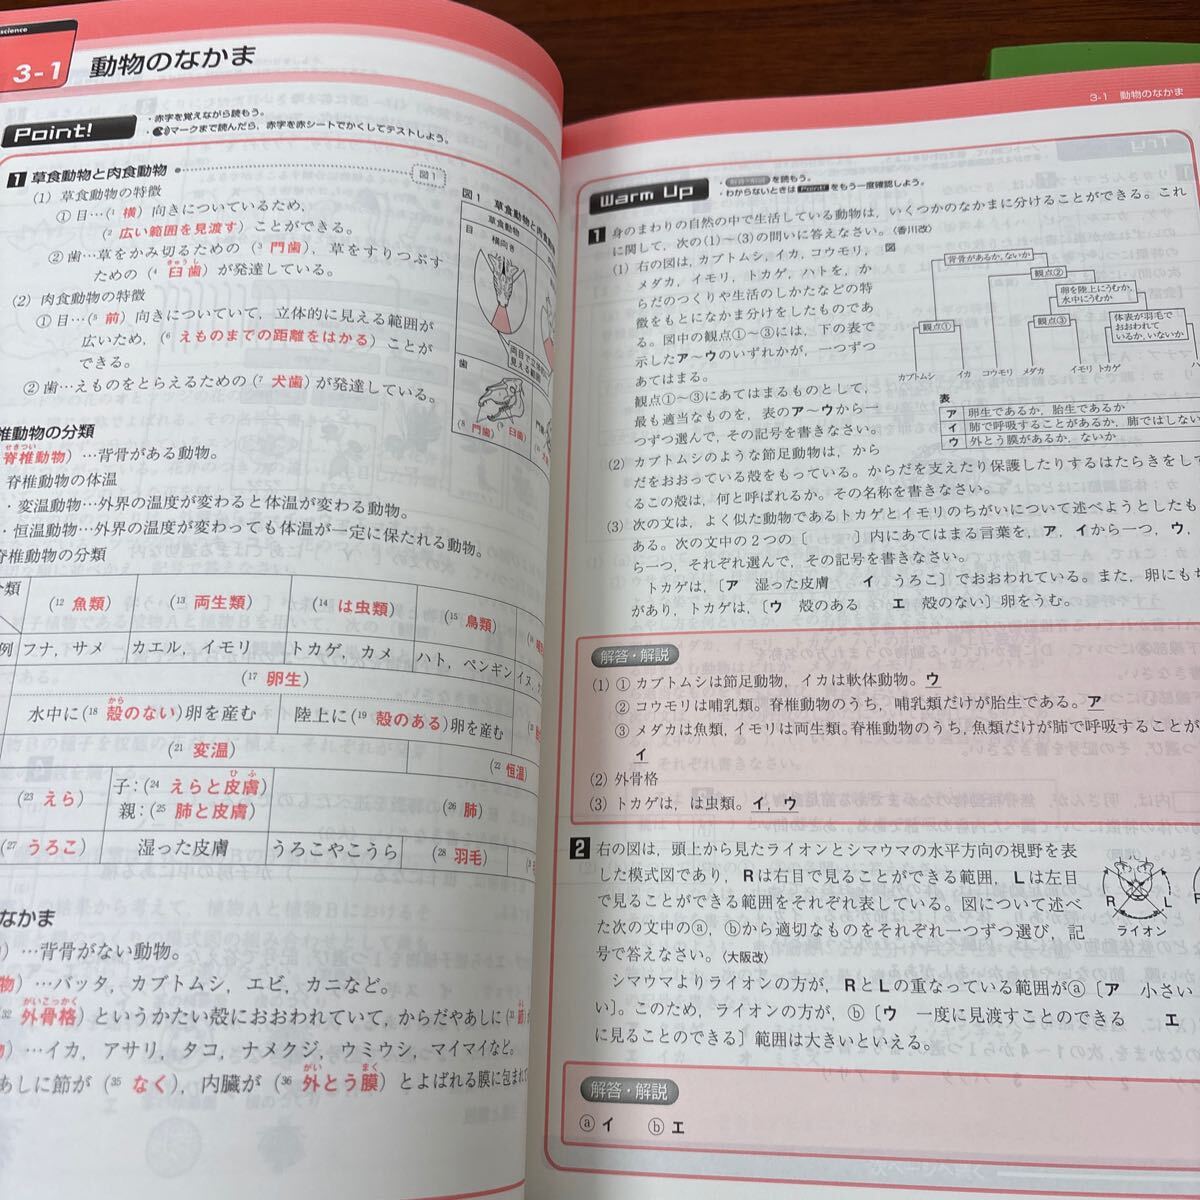 science
3-1 動物のなかま
Point!
・赤字を覚えながら読もう。
マークまで読んだら、赤字を赤シートでかくしてテストしよう。
1 草食動物と肉食動物 図1
(1) 草食動物の特徴
① 目…(1 横) 向きについているため,
(2 広い範囲を見渡す) ことができる。
② 歯…草をかみ切るための (3 門歯), 草をすりつぶす
きゅうし
ための (4 臼歯) が発達している。
(2) 肉食動物の特徴
① 目…(5 前) 向きについていて, 立体的に見える範囲が
広いため, (6 えものまでの距離をはかる) ことが
できる。
② 歯…えものをとらえるための (7 犬歯) が発達している。
図1 草食動物と肉食動
草食動物
目 横向き
両目で立体
見える範囲
歯
(8 門歯) (9 臼歯)
椎動物の分類
せきつい
脊椎動物) …背骨がある動物。
脊椎動物の体温
・変温動物…外界の温度が変わると体温が変わる動物。
・恒温動物…外界の温度が変わっても体温が一定に保たれる動物。
脊椎動物の分類
類 (12 魚類) (13 両生類) (14 は虫類) (15 鳥類)
例 フナ, サメ カエル, イモリ トカゲ, カメ ハト, ペンギン イヌ,
(17 卵生)
から
水中に (18 殻のない) 卵を産む 陸上に (19 殻のある) 卵を産む
(21 変温) (22 恒温)
ひふ
(23 えら) 子: (24 えらと皮膚) (26 肺)
親: (25 肺と皮膚)
(27 うろこ) 湿った皮膚 うろこやこうら (28 羽毛)
なかま
) …背骨がない動物。
物) …バッタ, カブトムシ, エビ, カニなど。
がいこっかく
(32 外骨格) というかたい殻におおわれていて, からだやあしに
物) …イカ, アサリ, タコ, ナメクジ, ウミウシ, マイマイなど。
がい まく
あしに節が (35 なく), 内臓が (36 外とう膜) とよばれる膜に包まれて
3-1 動物のなかま
Warm Up
・解答・解説 を読もう。
・わからないときは Point! をもう一度確認しよう。
1 身のまわりの自然の中で生活している動物は, いくつかのなかまに分けることができる。これ
に関して, 次の(1)~(3)の問いに答えなさい。〈香川改〉
(1) 右の図は, カブトムシ, イカ, コウモリ,
メダカ, イモリ, トカゲ, ハトを, か
らだのつくりや生活のしかたなどの特
徴をもとになかま分けをしたものであ
る。図中の観点①~③には, 下の表で
示したア~ウのいずれかが, 一つずつ
あてはまる。
観点①~③にあてはまるものとして,
最も適当なものを, 表のア~ウから一
つずつ選んで, その記号を書きなさい。
図
背骨があるか, ないか
観点②
卵を陸上にうむか,
水中にうむか
観点①
観点③
体表が羽毛で
おおわれて
いるか, いないか
カブトムシ イカ コウモリ メダカ イモリ トカゲ ハ
表
ア 卵生であるか, 胎生であるか
イ 肺で呼吸することがあるか, 肺ではしない
ウ 外とう膜があるか, ないか
(2) カブトムシのような節足動物は, から
だをおおっている殻をもっている。からだを支えたり保護したりするはたらきをして
るこの殻は, 何と呼ばれるか。その名称を書きなさい。
(3) 次の文は, よく似た動物であるトカゲとイモリのちがいについて述べようとしたも
ある。次の文中の2つの〔 〕内にあてはまる言葉を, ア, イから一つ, ウ,
ら一つ, それぞれ選んで, その記号を書きなさい。
トカゲは, 〔ア 湿った皮膚 イ うろこ〕でおおわれている。また, 卵にもち
があり, トカゲは, 〔ウ 殻のある エ 殻のない〕卵をうむ。
解答・解説
(1) ① カブトムシは節足動物, イカは軟体動物。ウ
② コウモリは哺乳類。脊椎動物のうち, 哺乳類だけが胎生である。ア
③ メダカは魚類, イモリは両生類。脊椎動物のうち, 魚類だけが肺で呼吸することが
イ
(2) 外骨格
(3) トカゲは, は虫類。イ, ウ
2 右の図は, 頭上から見たライオンとシマウマの水平方向の視野を表
した模式図であり, Rは右目で見ることができる範囲, Lは左目
で見ることができる範囲をそれぞれ表している。図について述べ
た次の文中のⓐ, ⓑから適切なものをそれぞれ一つずつ選び, 記
号で答えなさい。〈大阪改〉
R L
ライオン
シマウマよりライオンの方が, RとLの重なっている範囲がⓐ〔ア 小さい
い〕。このため, ライオンの方が, ⓑ〔ウ 一度に見渡すことのできる エ
に見ることのできる〕範囲は大きいといえる。
解答・解説
ⓐ イ ⓑ エ